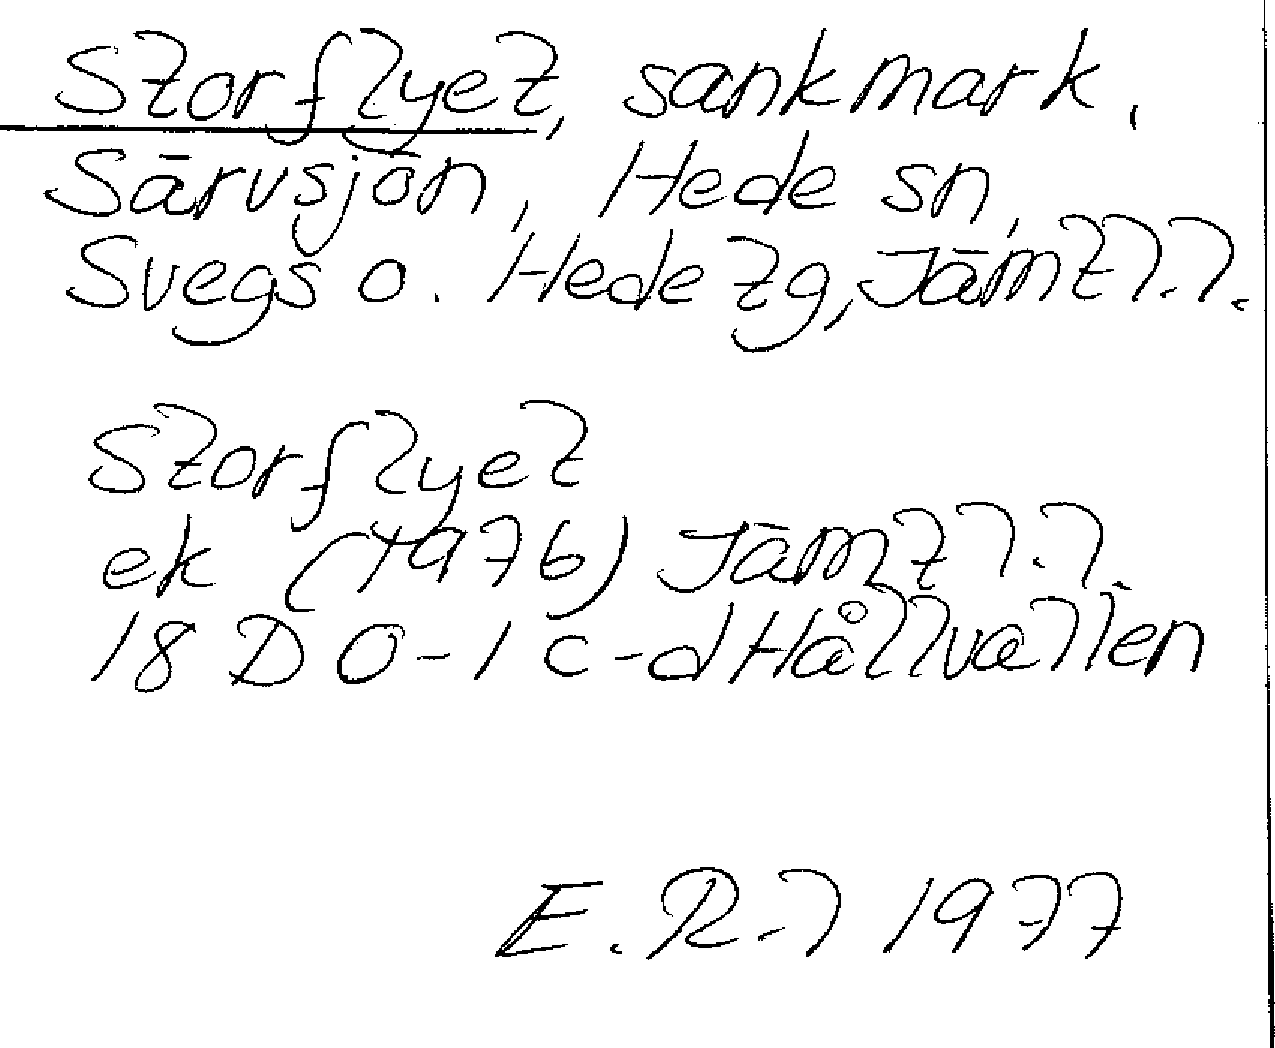 Storflyet, sankmark,
Särvsjön, Hede sn,
Svegs o. Hede tg, Jämtl.l.
Storflyet
ek (1976) Jämtl.l.
18 D 0-1 c-d Hållvallen
E. R-l 1977